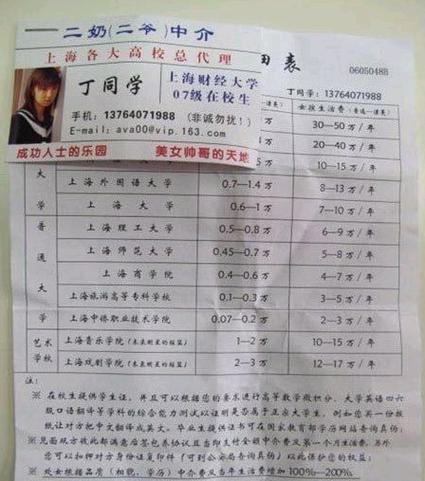 一二奶(二爷)中介
上海各大高校总代理
丁同学
上海财经大学
07级在校生
手机：13764071988 (非诚勿扰！)
E-mail：ava00@vip.163.com
成功人士的乐园 美女帅哥的天地
表
0605048B
丁同学：13764071988
女孩生活费
万 30—50万/年
万 20—40万/年
万 10—15万/年
大 上海外国语大学 0.7—1.4万 8—13万/年
学 上海大学 0.6—1万 7—10万/年
普 上海理工大学 0.5—0.8万 6—9万/年
通 上海师范大学 0.45—0.7万 5—8万/年
上海商学院 0.4—0.6万 4—7万/年
大 上海旅游高等专科学校 0.1—0.3万 3—5万/年
学 上海中侨职业技术学院 0.07—0.2万 2—3万/年
艺术 上海音乐学院(未来明星的摇篮) 1—2万 10—15万/年
学校 上海戏剧学院(未来明星的摇篮) 2—3万 12—17万/年
注：
※ 在校生提供学生证，并且可以根据您的要求进行高等数学微积分、大学英语四六
级口语翻译等学科的综合能力测试以证明是否属于正宗大学生，例如您买一份报
纸让对方把中文翻译成英文。毕业生提供证书可在国家教育部学历网站查询真伪；
※ 见面双方彼此都满意后签包养协议且当即支付全额中介费及第一个月生活费，另外
您可以扣押对方身份证复印件(可到公安局查询真伪)以此保护您的权益；
※ 处女根据品质(相貌、学历)中介费及当年生活费增加100%—200%.